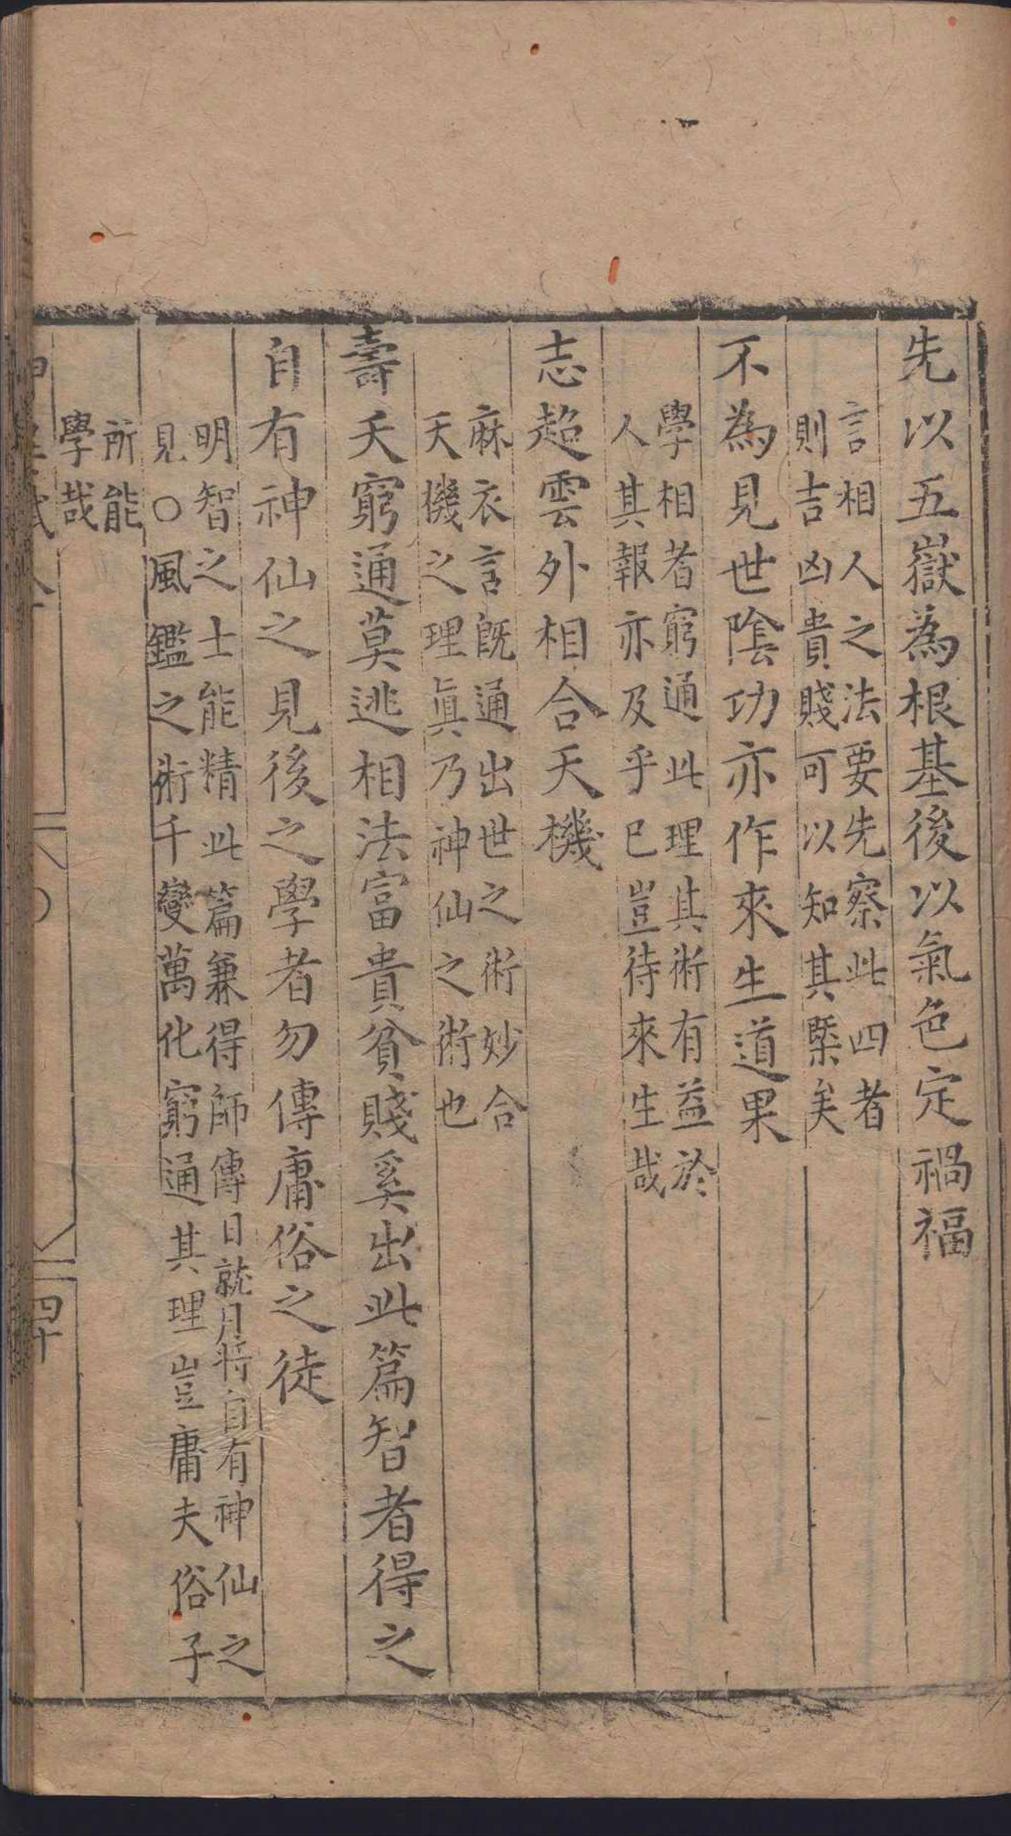 先以五嶽為根基後以氣色定禍福
言相人之法要先察此四者
則吉凶貴賤可以知其槩矣
不為見世陰功亦作來生道果
學相者窮通此理其術有益於
人其報亦及乎巳豈待來生哉
志超雲外相合天機
麻衣言既通出世之術妙合
天機之理眞乃神仙之術也
壽夭窮通莫逃相法富貴貧賤奚出此篇智者得之
自有神仙之見後之學者勿傳庸俗之徒
明智之士能精此篇兼得師傳日就月將自有神仙之
見○風鑑之術千變萬化窮通其理豈庸夫俗子
所能
學哉
四十